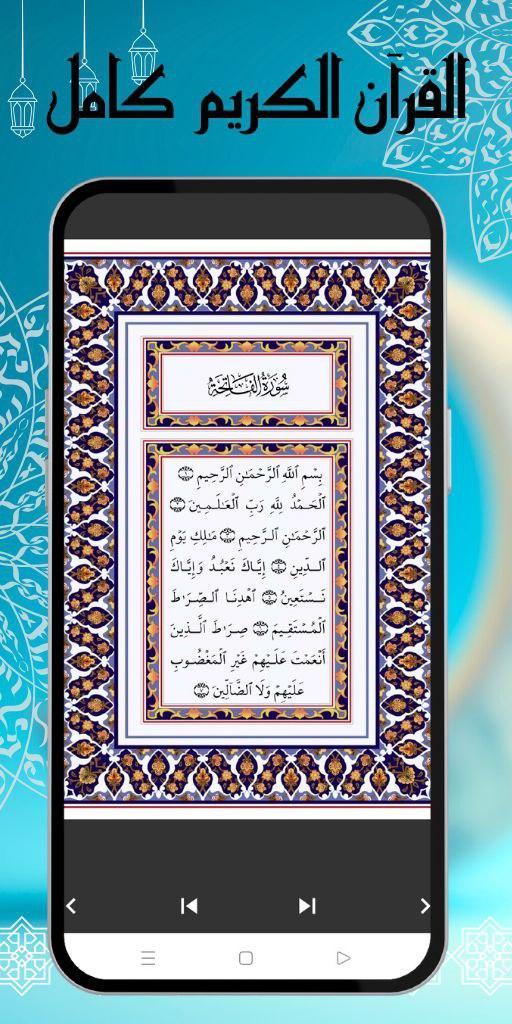 القرآن الكريم كامل
سُورَةُ الْفَاتِحَةِ
بِسْمِ ٱللَّهِ ٱلرَّحْمَٰنِ ٱلرَّحِيمِ ١
ٱلْحَمْدُ لِلَّهِ رَبِّ ٱلْعَٰلَمِينَ ٢
ٱلرَّحْمَٰنِ ٱلرَّحِيمِ ٣ مَٰلِكِ يَوْمِ
ٱلدِّينِ ٤ إِيَّاكَ نَعْبُدُ وَإِيَّاكَ
نَسْتَعِينُ ٥ ٱهْدِنَا ٱلصِّرَٰطَ
ٱلْمُسْتَقِيمَ ٦ صِرَٰطَ ٱلَّذِينَ
أَنْعَمْتَ عَلَيْهِمْ غَيْرِ ٱلْمَغْضُوبِ
عَلَيْهِمْ وَلَا ٱلضَّآلِّينَ ٧